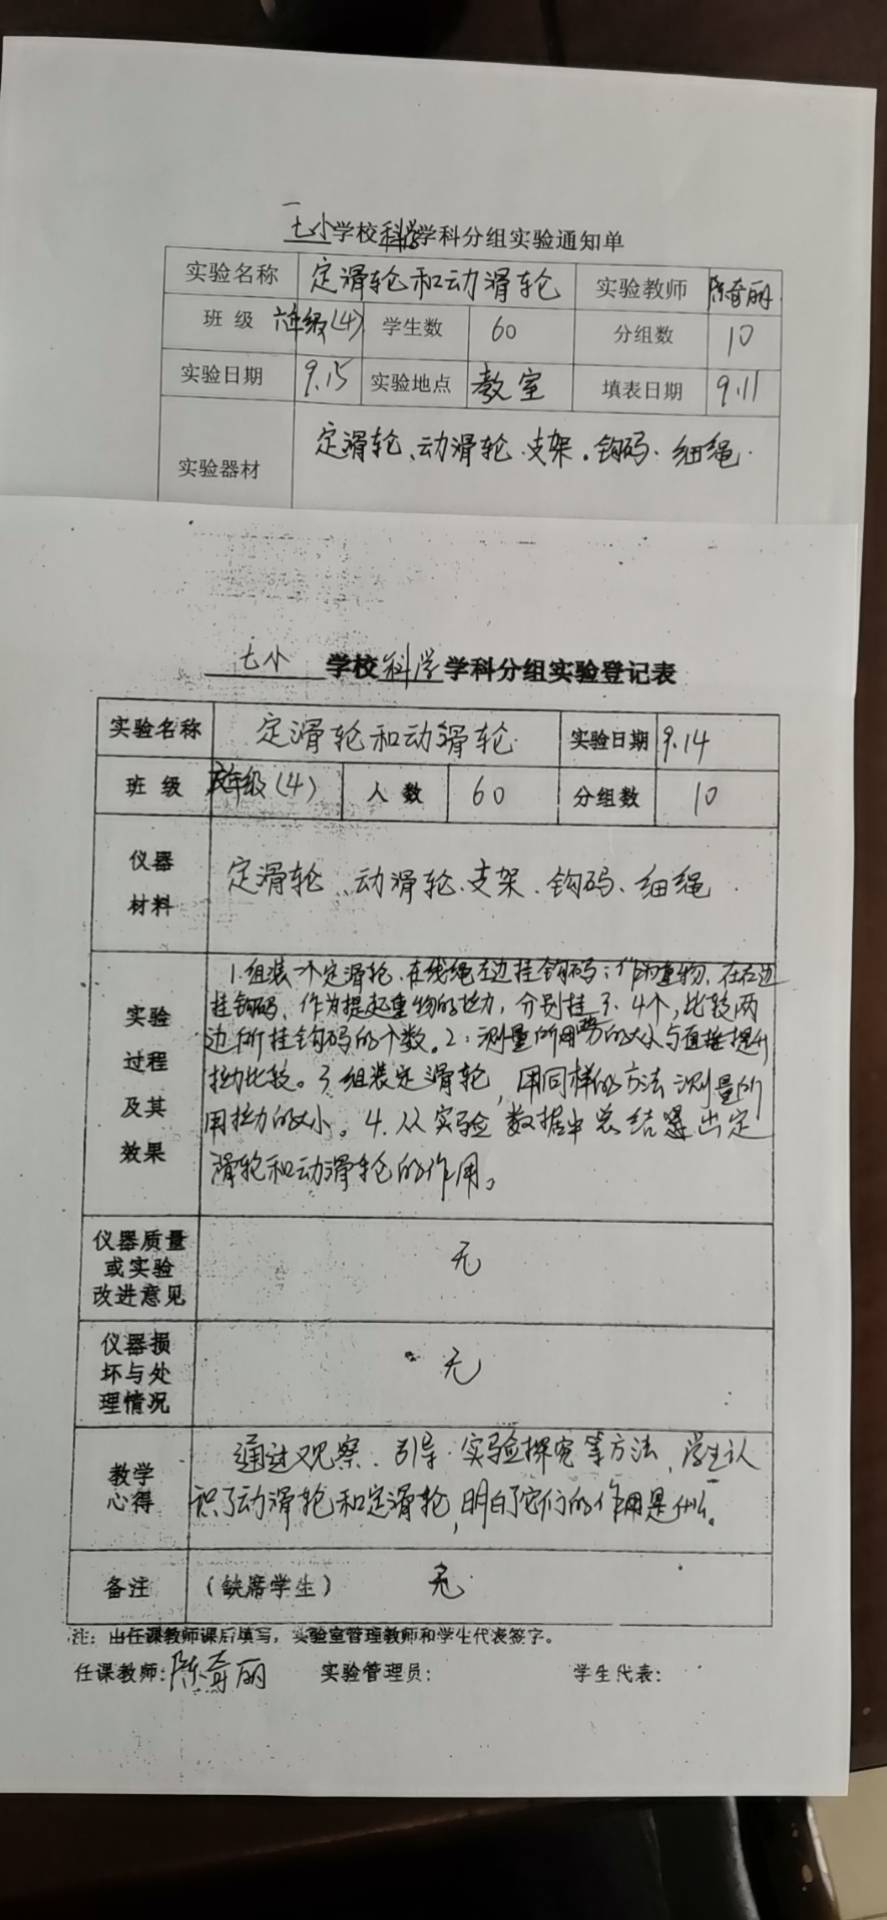 七小学校科学学科分组实验通知单
实验名称 定滑轮和动滑轮 实验教师 陈奇丽
班 级 六年级(4) 学生数 60 分组数 10
实验日期 9.15 实验地点 教室 填表日期 9.11
实验器材 定滑轮、动滑轮、支架、钩码、细绳.
七小 学校科学学科分组实验登记表
实验名称 定滑轮和动滑轮. 实验日期 9.14
班 级 六年级(4) 人 数 60 分组数 10
仪器
材料
定滑轮、动滑轮、支架、钩码、细绳.
实验
过程
及其
效果
1.组装一个定滑轮.在线绳左边挂钩码;作为重物.在右边
挂钩码、作为提起重物的拉力,分别挂3、4个,比较两
边所挂钩码的个数。2:测量所用的大小与直接提升
拉力比较。3.组装定滑轮,用同样的方法测量所
用拉力的大小。4.从实验数据中总结出定
滑轮和动滑轮的作用。
仪器质量
或实验
改进意见
无
仪器损
坏与处
理情况
无
教学
心得
通过观察、引导、实验探究等方法,学生认
识了动滑轮和定滑轮,明白了它们的作用是什么。
备注 (缺席学生) 无
注:由任课教师课后填写,实验室管理教师和学生代表签字。
任课教师:陈奇丽 实验管理员: 学生代表: